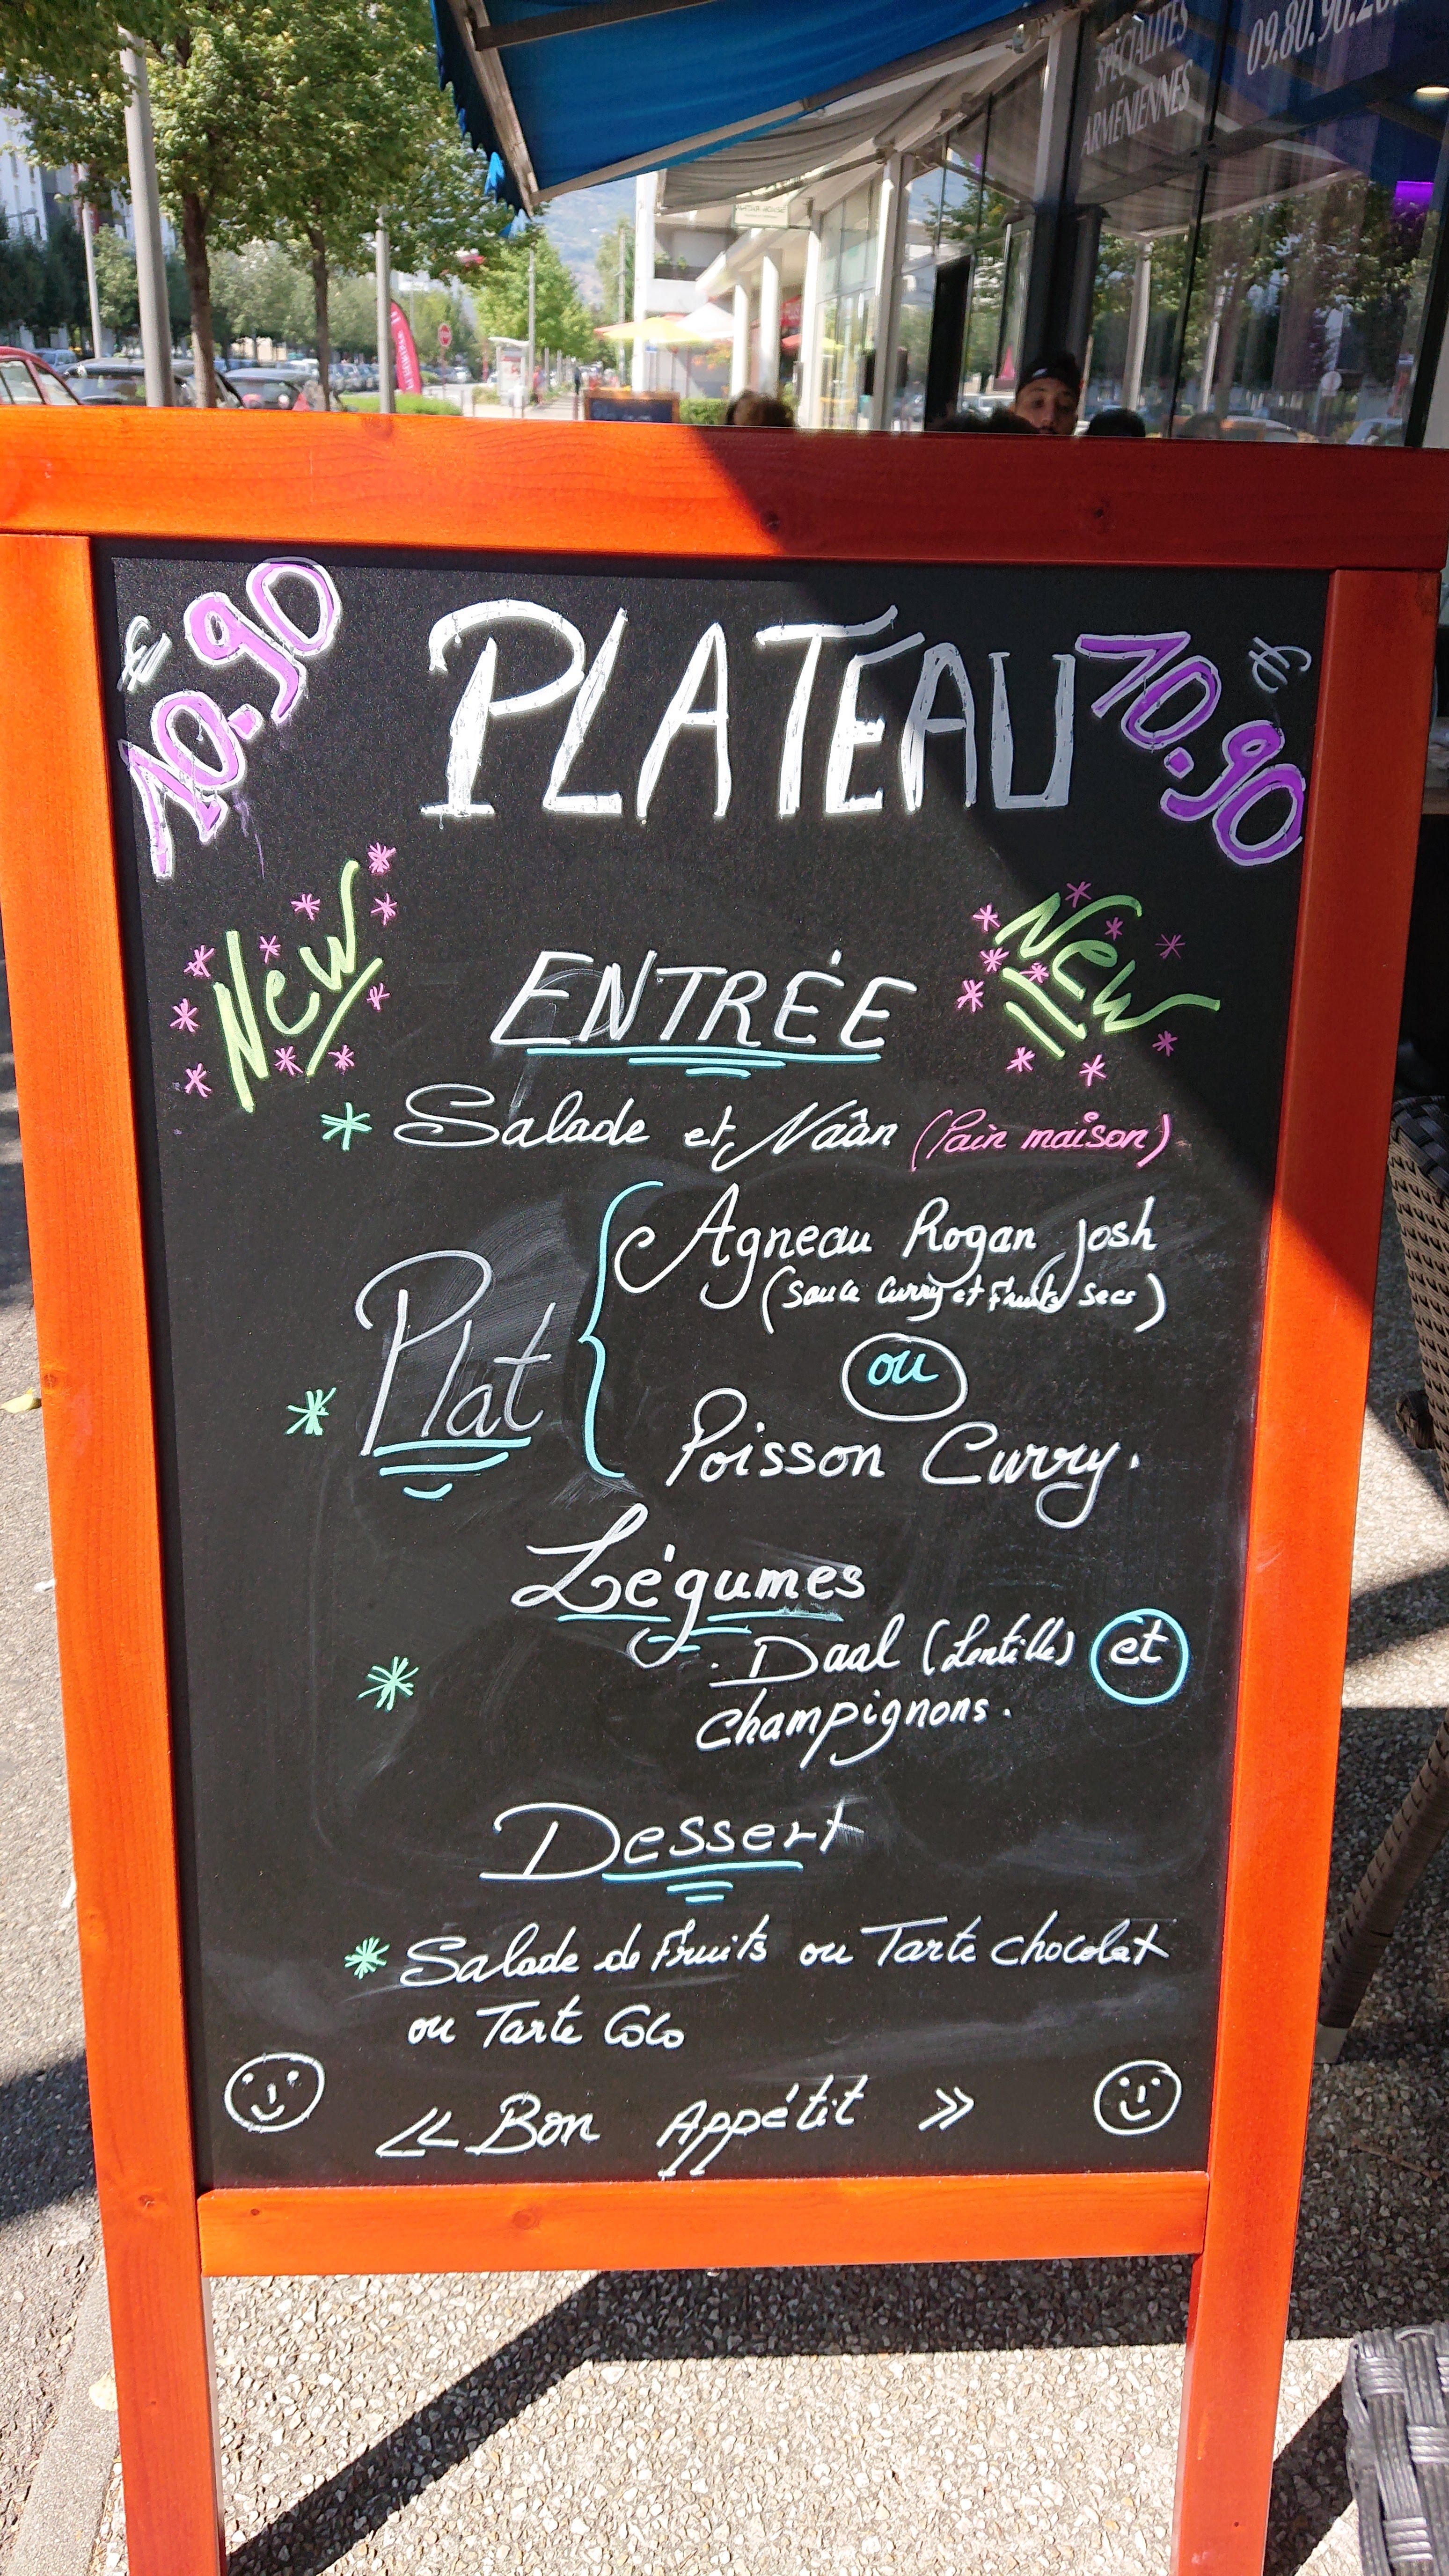 SPÉCIALITÉS
ARMÉNIENNES
09.80.90.20
€ 10.90
PLATEAU
10.90 €
New
New
ENTRÉE
* Salade et Naân (Pain maison)
* Plat
Agneau Rogan Josh
(Sauce Curry et Fruits Secs)
ou
Poisson Curry.
Légumes
* . Daal (Lentille) et
champignons.
Dessert
* Salade de Fruits ou Tarte chocolat
ou Tarte Coco
« Bon Appétit »